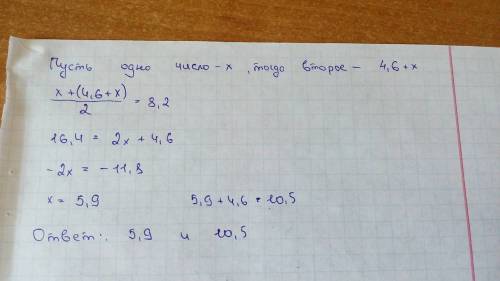 Пусть одно число - х, тогда второе - 4,6+х
x+(4,6+x)/2 = 8,2
16,4 = 2x + 4,6
-2x = -11,8
x = 5,9 5,9 + 4,6 = 10,5
Ответ: 5,9 и 10,5